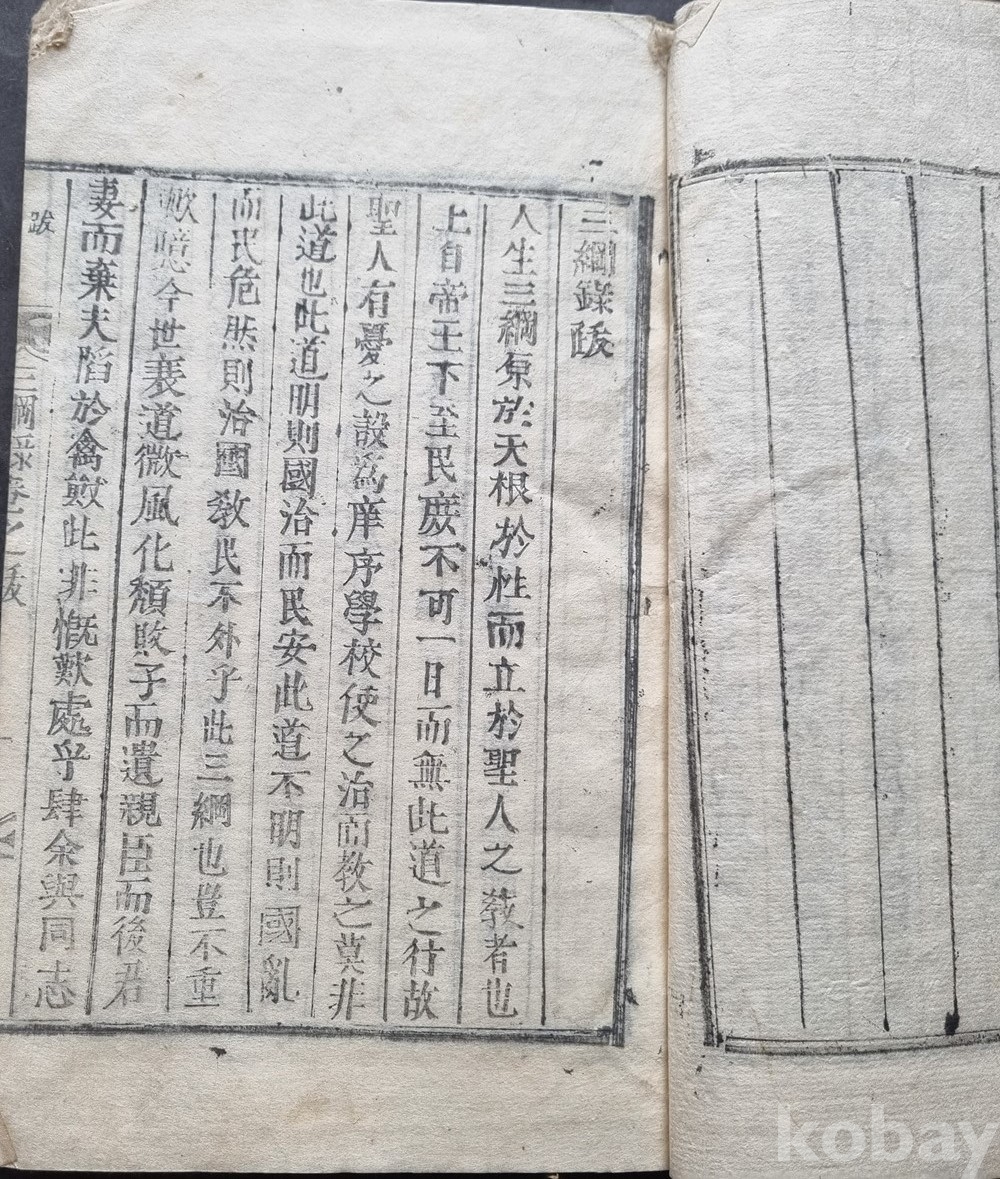 三綱錄跋
人生三綱原於天根於性而立於聖人之敎者也
上自帝王下至民庶不可一日而無此道之行故
聖人有憂之設爲庠序學校使之治而敎之莫非
此道也此道明則國治而民安此道不明則國亂
而民危然則治國敎民不外乎此三綱也豈不重
歟噫今世衰道微風化頹敗子而遺親臣而後君
妻而棄夫陷於禽獸此非慨歎處乎肆余與同志
跋
三綱錄卷之跋
kobay